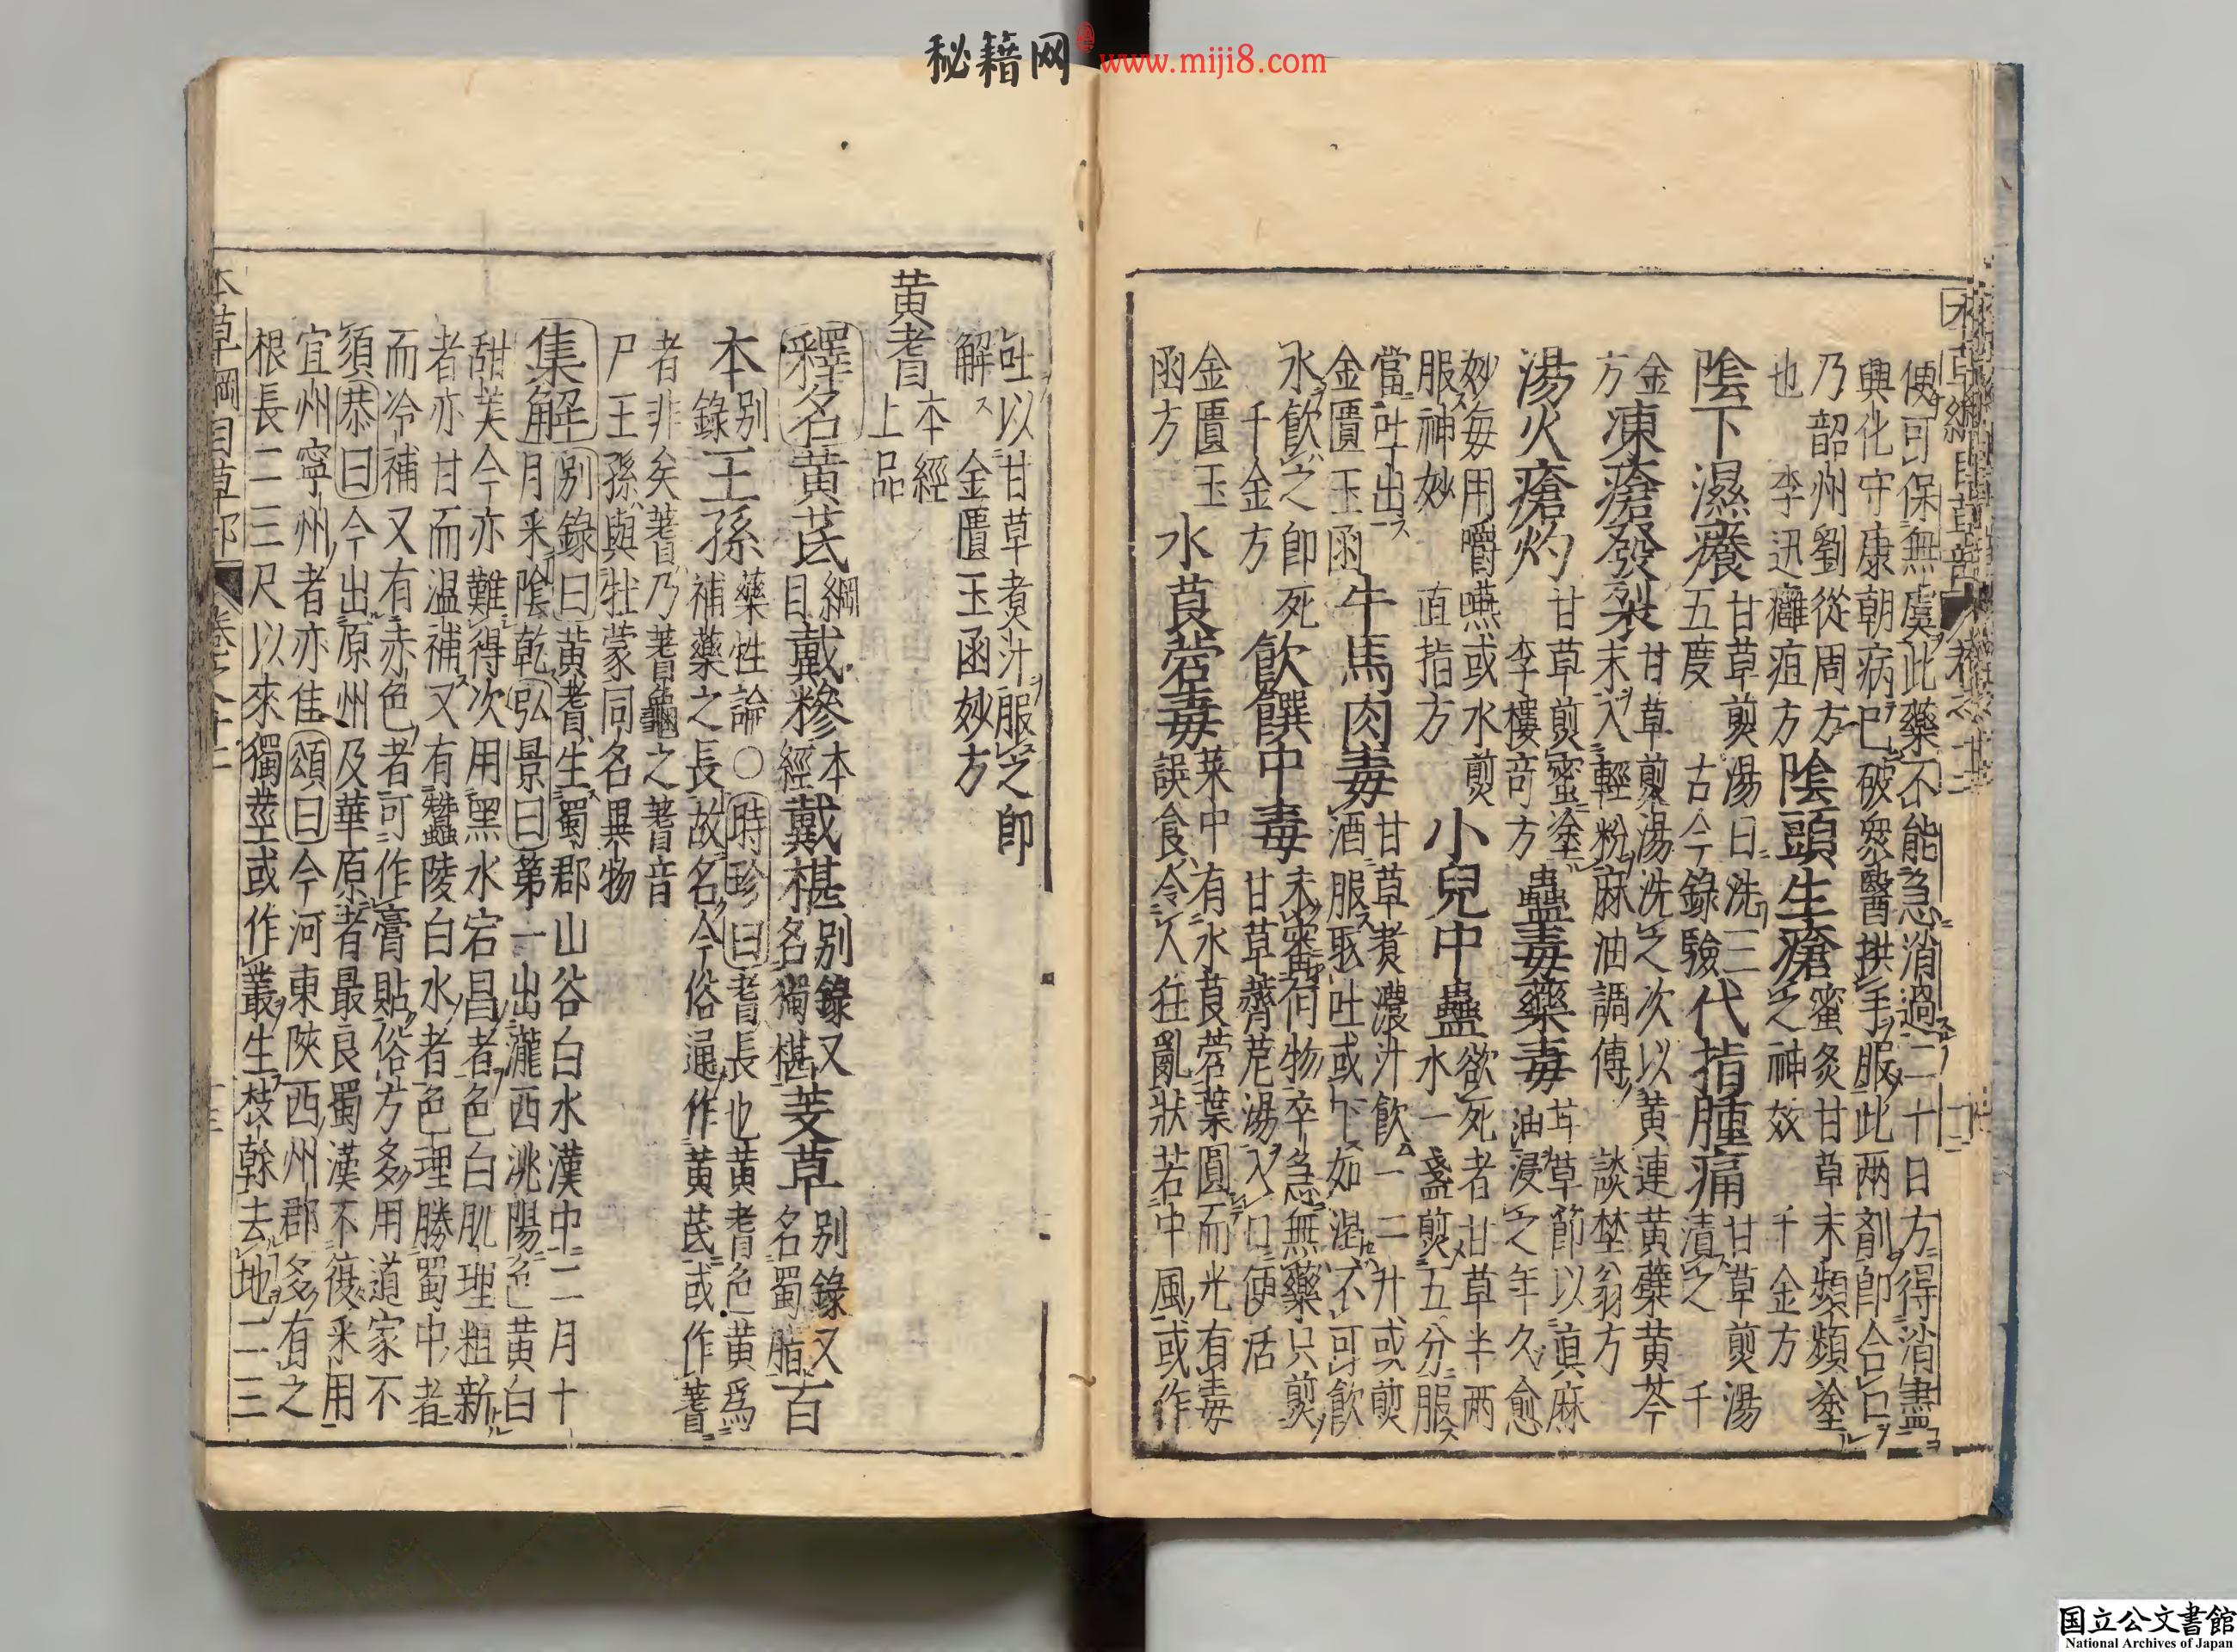 秘籍网 www.miji8.com
便可保無虞此藥不能急消過二十日方得消盡
興化守康朝病已破衆醫拱手服此兩劑即合口
乃韶州劉從周方
也 李迅癰疽方
陰頭生瘡 蜜炙甘草末頻頻塗
之神效 千金方
陰下濕癢 甘草煎湯日洗三
五度 古今錄驗
代指腫痛 甘草煎湯
漬之 千
金
方
凍瘡發裂 甘草煎湯洗之次以黄連黄蘗黄芩
末入輕粉麻油調傅 談埜翁方
湯火瘡灼 甘草煎蜜塗
李樓奇方
蠱毒藥毒 甘草節以眞麻
油浸之年久愈
妙每用嚼嚥或水煎
服神妙 直指方
小兒中蠱 欲死者甘草半兩
水一盞煎五分服
當吐出
金匱玉函
牛馬肉毒 甘草煑濃汁飲一二升或煎
酒服取吐或下如渴不可飲
水飲之即死
千金方
飲饌中毒 未審何物卒急無藥只煎
甘草薺苨湯入口便活
金匱玉
函方
水莨菪毒 菜中有水莨菪葉圓而光有毒
誤食令人狂亂狀若中風或作
吐以甘草煑汁服之即
解 金匱玉函妙方
黄耆 本經
上品
釋名 黄芪 綱
目 戴糝 本
經 戴椹 别錄又
名獨椹 芰草 别錄又
名蜀脂 百
本 别
錄 王孫 藥性論○時珍曰耆長也黄耆色黄爲
補藥之長故名今俗通作黄芪或作蓍
者非矣蓍乃蓍龜之蓍音
尸王孫與牡蒙同名異物
集解 别錄曰黄耆生蜀郡山谷白水漢中二月十
月采陰乾弘景曰第一出隴西洮陽色黄白
甜美今亦難得次用黑水宕昌者色白肌理粗新
者亦甘而温補又有蠶陵白水者色理勝蜀中者
而冷補又有赤色者可作膏貼俗方多用道家不
須恭曰今出原州及華原者最良蜀漢不復采用
宜州寧州者亦佳頌曰今河東陝西州郡多有之
根長二三尺以來獨莖或作叢生枝幹去地二三
本草綱目草部 卷之十二
国立公文書館
National Archives of Japan